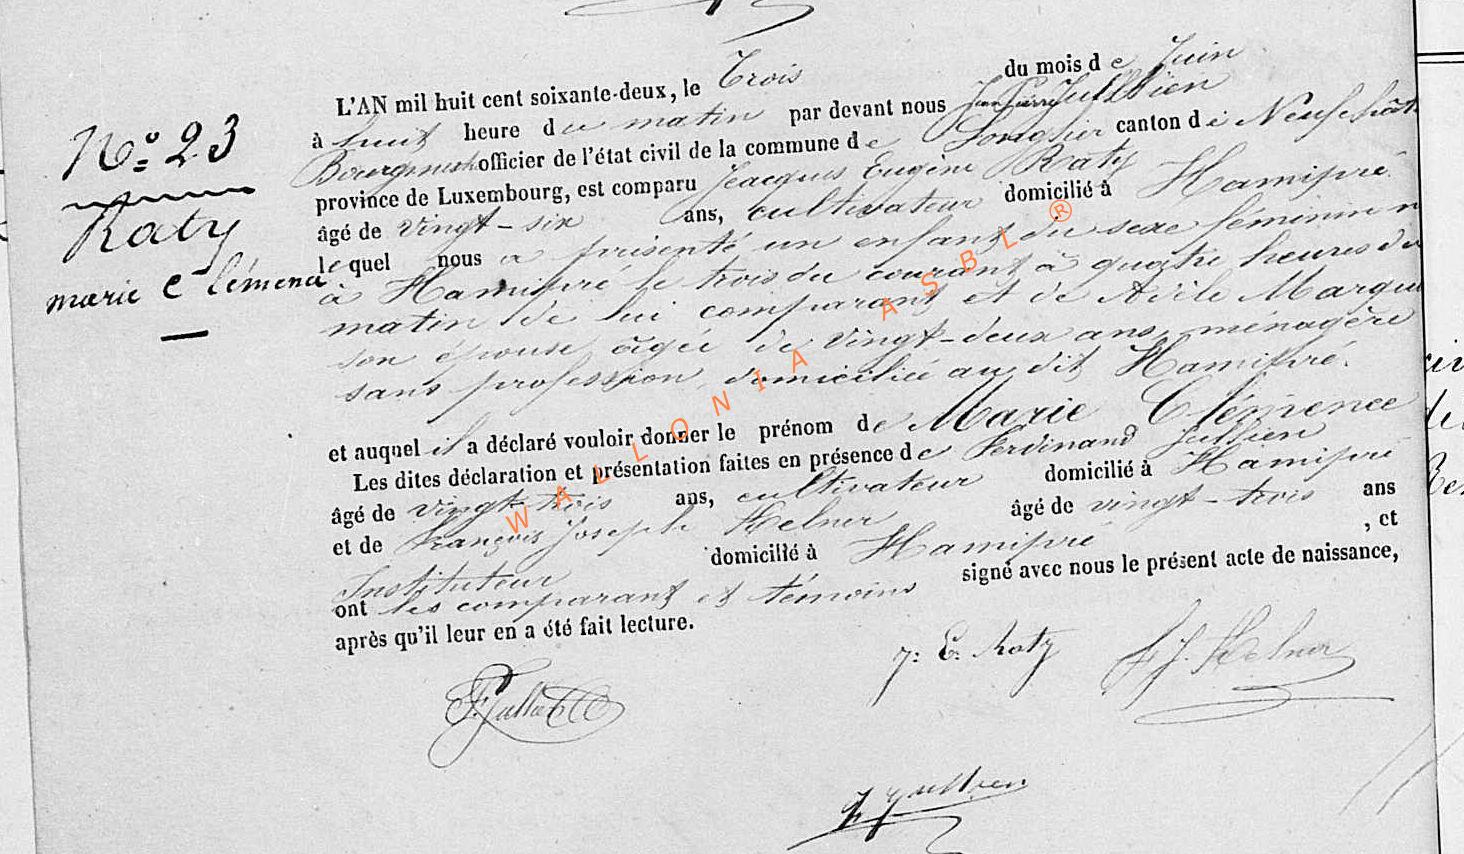 N° 23
Raty
marie Clémence
L'AN mil huit cent soixante-deux, le Trois du mois de Juin
à huit heure du matin par devant nous Jean Pierre Jullien
Bourgmestre officier de l'état civil de la commune de Longlier canton de Neufchât
province de Luxembourg, est comparu Jeacques Eugène Raty
âgé de vingt-six ans, cultivateur domicilié à Hamipré.
lequel nous a présenté un enfant du sexe féminin n
à Hamipré le trois du courant à quatre heures du
matin de lui comparant et de Adèle Marqu
son épouse âgée de vingt-deux ans, ménagère
sans profession, domiciliée au dit Hamipré.
et auquel il a déclaré vouloir donner le prénom de Marie Clémence
Les dites déclaration et présentation faites en présence de Ferdinand Jullien
âgé de vingt-trois ans, cultivateur domicilié à Hamipré
et de François Joseph Helner âgé de vingt-trois ans
Instituteur domicilié à Hamipré , et
ont les comparant et témoins signé avec nous le présent acte de naissance,
après qu'il leur en a été fait lecture.
J: E. Raty
F. J. Helner
F. Jullien
WALLONIA ASBL ®